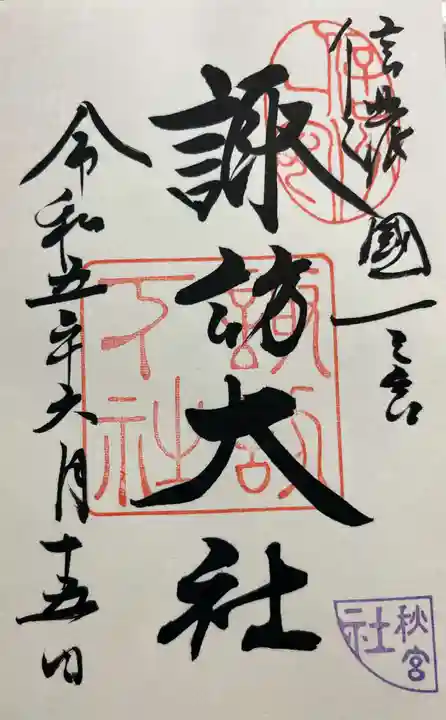 信濃國一之宮
諏訪大社
諏訪
下社
令和五年六月十五日
秋宮
社